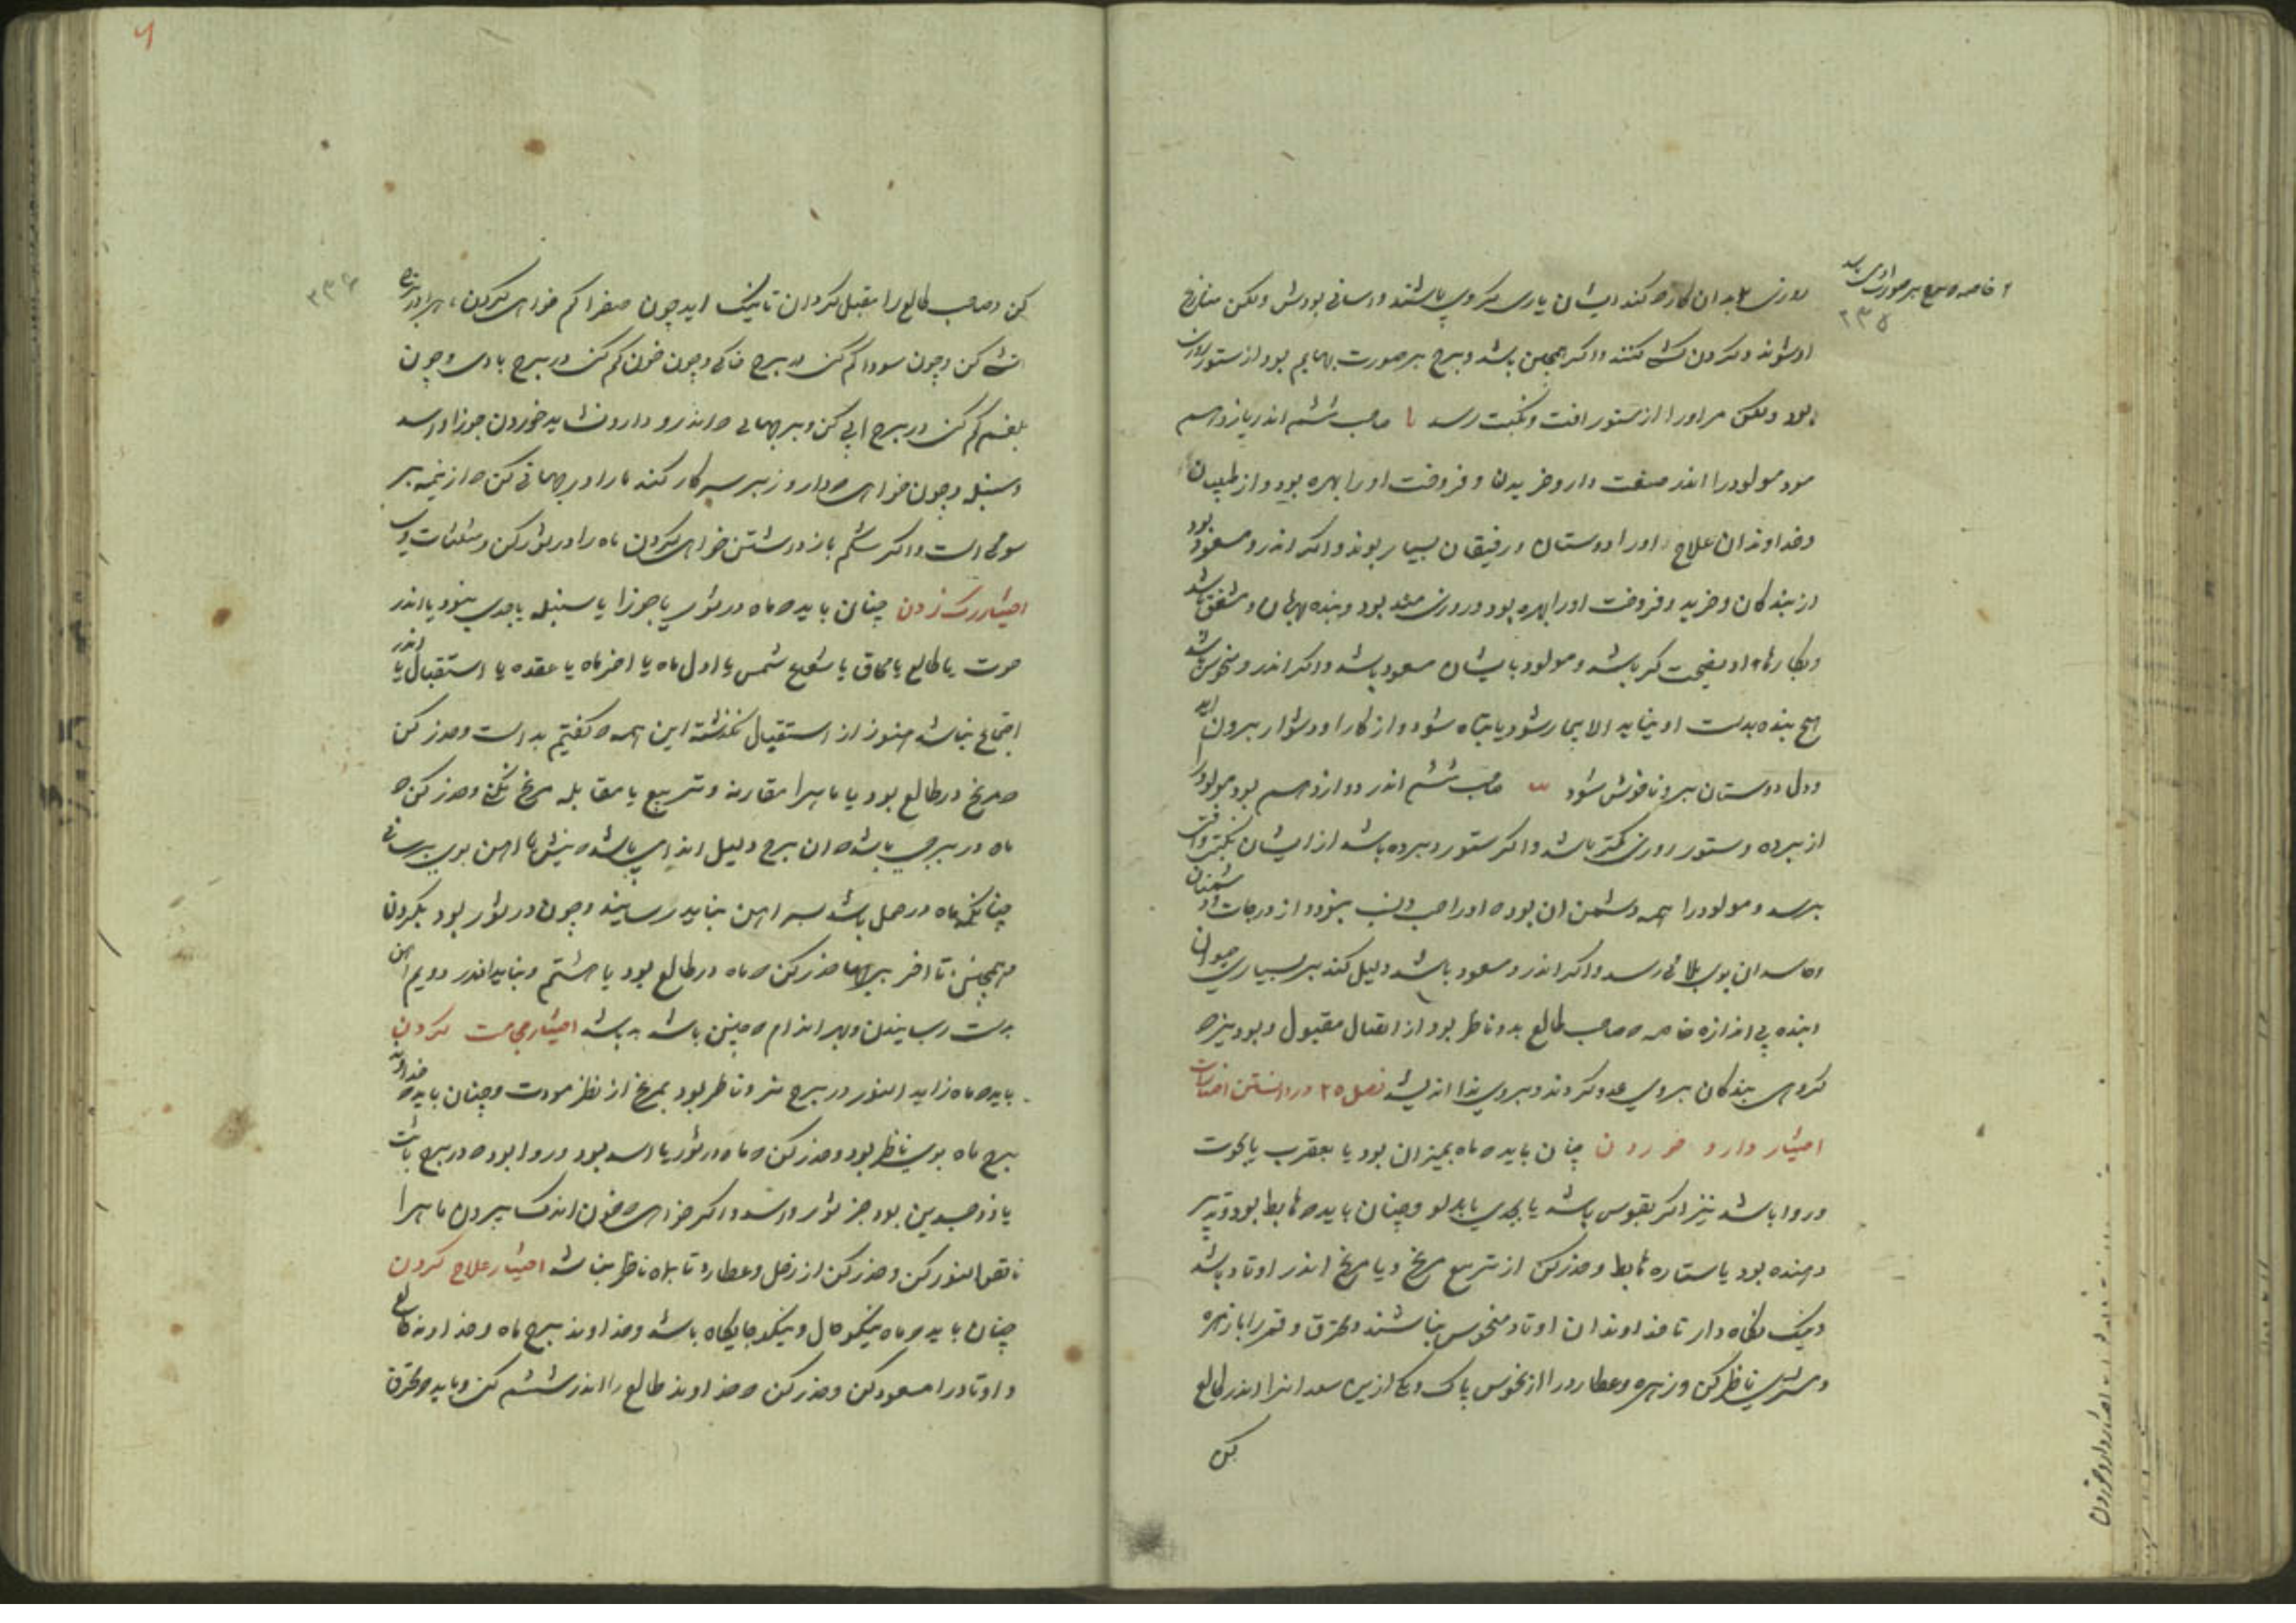 روزی بدان کارها کند ایشان یاری کر وی باشند و آسانی بودش ولکن منازع
او شوند و گردن کشی کنند و اگر همچنین باشد و برج بر صورت بهایم بود از ستور
بود ولکن مر او را از ستور آفت و نکبت رسد یا صاحب ششم اندر یازدهم
بود مولود را اندر صنعت دارو خریدن و فروخت او را بهره بود و از طبیبان
و خداوندان علاج او را دوستان و رفیقان بسیار بوند و اگر اندرو مسعود بود
از بندگان و خرید و فروخت او را بهره بود و روزی مند بود و بنده مهربان و مشفق باشد
و بکارهای او نصیحت گر باشد و مولود بایشان مسعود باشد و اگر اندرو منحوس باشد
هیچ بنده بدست او نیاید الا بیمار شود یا تباه شود و از کار او دشوار بیرون آید
و دل دوستان برو ناخوش شود یب صاحب ششم اندر دوازدهم بود مولود
از برده و ستور روزی کمتر باشد و اگر ستور و برده باشد از ایشان نکبت و آفت
برسد و مولود را همه دشمن آن بود که او را حسب و نسب نبود و از درجات دشمنان
و حاسدان بوی بلائی رسد و اگر اندرو مسعود باشد دلیل کند بر بسیاری حیوان
و بنده بی اندازه خاصه که صاحب طالع بدو ناظر بود از اتصال مقبول و بود نیز که
گروهی بندگان بروی عدو گردند و بروی بد اندیشند فصل ۲۵ در دانستن اختیارات
اختیار دارو خوردن چنان باید که ماه بمیزان بود یا بعقرب یا بحوت
و روا باشد نیز اگر بقوس باشد یا بجدی یا بدلو و چنان باید که هابط بود و تدبیر
دهنده بود با ستاره هابط و حذر کن از تربیع مریخ و یا مریخ اندر اوتاد باشد
و نیک نگاه دار تا خداوندان اوتاد منحوس نباشند و محترق و قمر را با زهره
و مشتری ناظر کن و زهره و عطارد را از نحوس پاک و یکی ازین سعدانرا اندر طالع
کن
کن و صاحب طالع را مقبل گردان تا نیک آید چون صفرا کم خواهی کردن ماه را در برج
آتشی کن و چون سودا کم کنی در برج خاکی و چون خون کم کنی در برج بادی و چون
بلغم کم کنی در برج آبی کن و برجهائی که اندرو دارو نشاید خوردن جوزا و اسد
و سنبله و چون خواهی که دارو زبر سر کار کند ماه را در برجهائی کن که از نیمه بر
سو می است و اگر شکم باز داشتن خواهی کردن ماه را در ثور کن و مثلثات وی
اختیار رگ زدن چنان باید که ماه در ثور یا جوزا یا سنبله یا جدی نبود یا اندر
حوت یا طالع یا محاق یا شعاع شمس یا اول ماه یا آخر ماه یا عقده یا استقبال یا اندر
اجتماع نباشد هنوز از استقبال نگذشته این همه که گفتیم بد است و حذر کن
که مریخ در طالع بود یا ماهرا مقارنه و تربیع یا مقابله مریخ نکنی و حذر کن که
ماه در برجی باشد که آن برج دلیل اندامی باشد که نیش یا آهن بوی برسانی
چنانکه ماه در حمل باشد بسر آهن نباید رسانید و چون در ثور بود بگردن
و همچنین تا آخر برجها حذر کن که ماه در طالع بود یا هشتم و نباید اندر دویم آهن
بدست رسانیدن و بهر اندام که چنین باشد بد باشد اختیار حجامت کردن
باید که ماه زاید النور در برج نر و ناظر بود بمریخ از نظر مودت و چنان باید که خداوند
برج ماه بوی ناظر بود و حذر کن که ماه در ثور یا اسد بود و روا بود که در برج ثابت
یا ذوجسدین بود جز ثور و اسد و اگر خواهی که خون اندک ببرون ماهرا
ناقص النور کن و حذر کن از زحل و عطارد تا بماه ناظر نباشد اختیار علاج کردن
چنان باید که ماه نیکو حال و نیکو جایگاه باشد و خداوند برج ماه و خداوند طالع
و اوتاد را مسعود کن و حذر کن که خداوند طالع را اندر ششم کن و باید که محترق